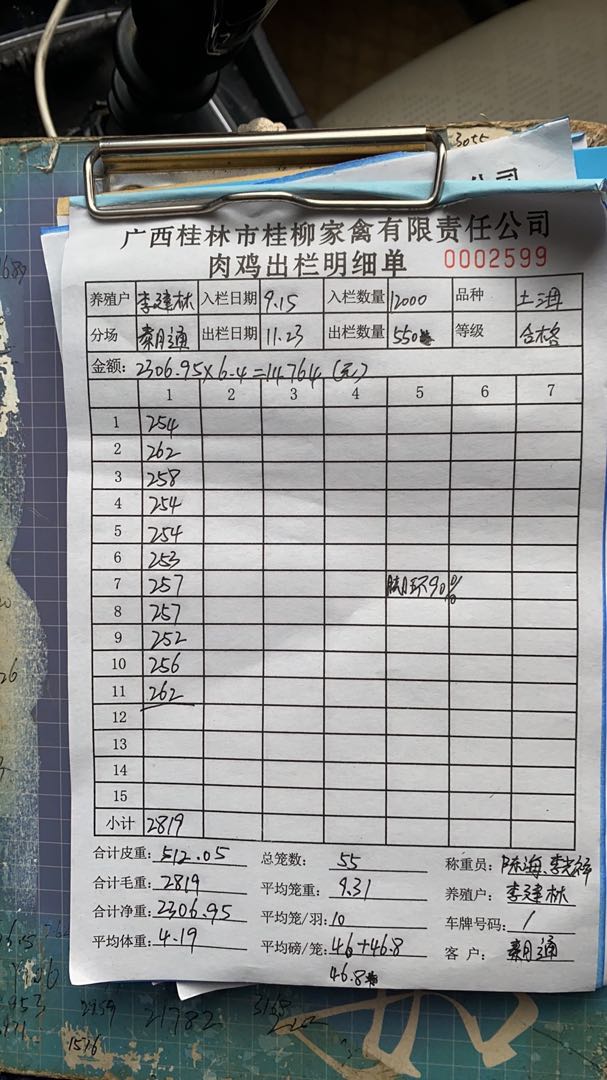 广西桂林市桂柳家禽有限责任公司
肉鸡出栏明细单 0002599
养殖户 李建林 入栏日期 9.15 入栏数量 12000 品种
分场 出栏日期 11.23 出栏数量 550 等级 合格
金额: 2306.95×6.4=14764(元)
1 2 3 4 5 6 7
1 254
2 262
3 258
4 254
5 254
6 253
7 257 脚环90%
8 257
9 252
10 256
11 262
12
13
14
15
小计 2819
合计皮重: 512.05 总笼数: 55 称重员: 陈海
合计毛重: 2819 平均笼重: 9.31 养殖户: 李建林
合计净重: 2306.95 平均笼/羽: 10 车牌号码: /
平均体重: 4.19 平均磅/笼: 46+46.8 客户:
46.8
3055
21782
1576